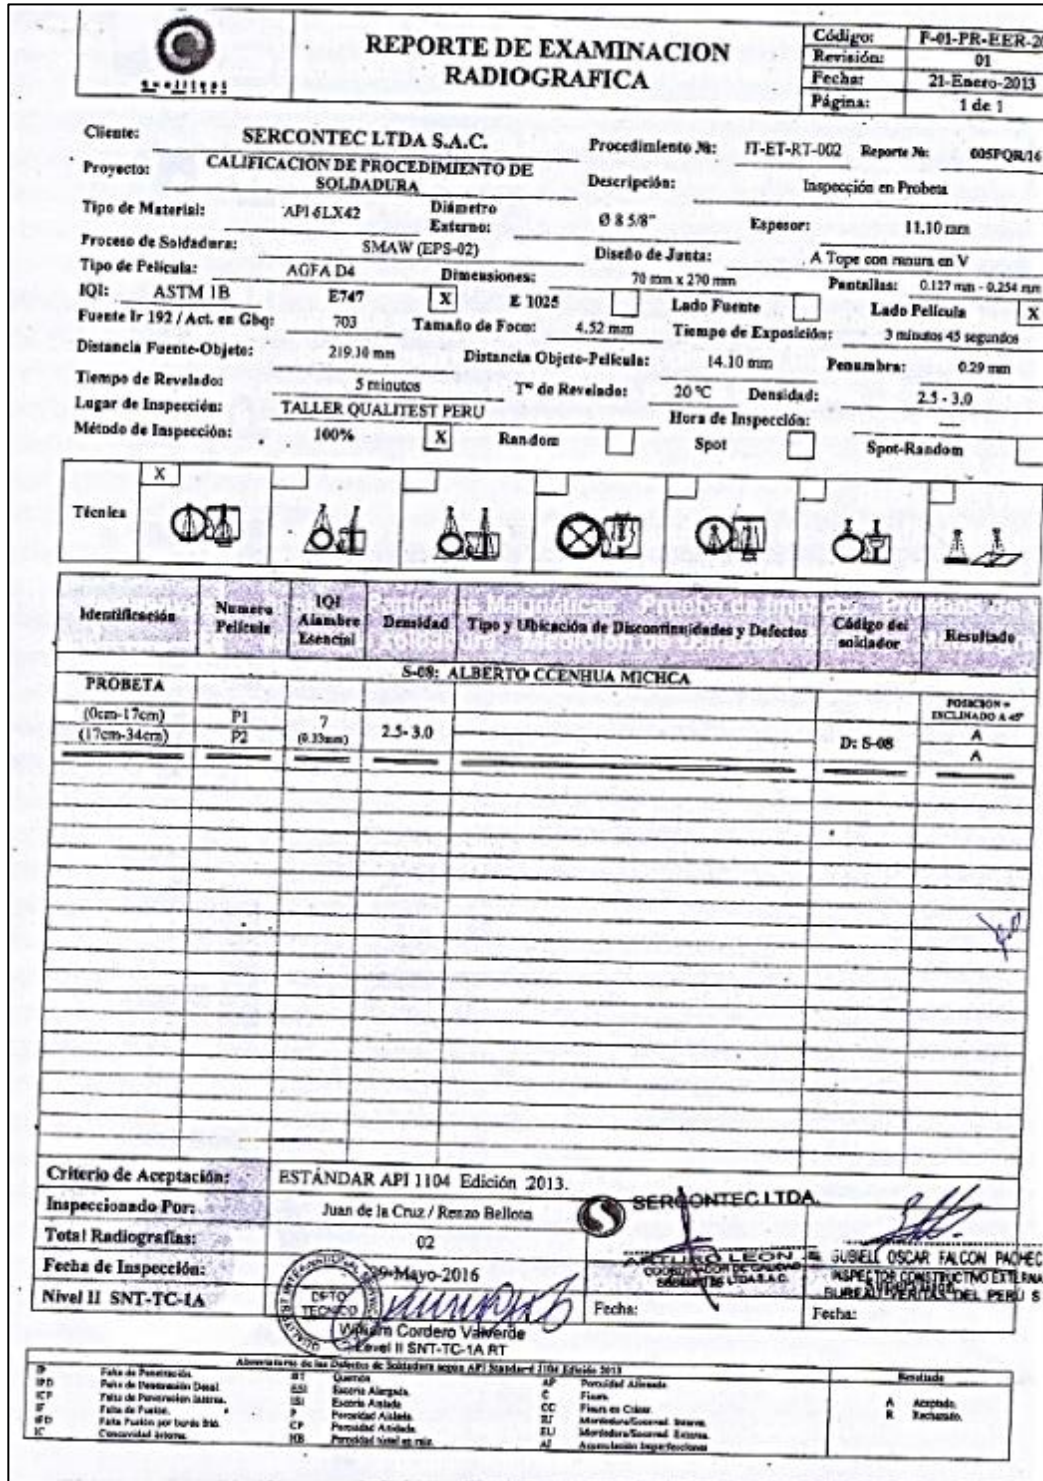 REPORTE DE EXAMINACION
RADIOGRAFICA
Código: F-01-PR-EER-20
Revisión: 01
Fecha: 21-Enero-2013
Página: 1 de 1
Cliente: SERCONTEC LTDA S.A.C. Procedimiento №: IT-ET-RT-002 Reporte №: 005PQR/16
Proyecto: CALIFICACION DE PROCEDIMIENTO DE SOLDADURA Descripción: Inspección en Probeta
Tipo de Material: API 5LX42 Diámetro Externo: Ø 8 5/8" Espesor: 11.10 mm
Proceso de Soldadura: SMAW (EPS-02) Diseño de Junta: A Tope con ranura en V
Tipo de Película: AGFA D4 Dimensiones: 70 mm x 270 mm Pantallas: 0.127 mm - 0.254 mm
IQI: ASTM 1B E747 X E 1025 Lado Fuente Lado Película X
Fuente Ir 192 / Act. en Gbq: 703 Tamaño de Foco: 4.52 mm Tiempo de Exposición: 3 minutos 45 segundos
Distancia Fuente-Objeto: 219.10 mm Distancia Objeto-Película: 14.10 mm Penumbra: 0.29 mm
Tiempo de Revelado: 5 minutos Tº de Revelado: 20 ºC Densidad: 2.5 - 3.0
Lugar de Inspección: TALLER QUALITEST PERU Hora de Inspección: ----
Método de Inspección: 100% X Random Spot Spot-Random
X
Técnica
Identificación Numero Película IQI Alambre Esencial Densidad Tipo y Ubicación de Discontinuidades y Defectos Código del soldador Resultado
S-08: ALBERTO CCENHUA MICHCA
PROBETA POSICION = INCLINADO A 45º
(0cm-17cm) P1 7 2.5- 3.0 D: S-08 A
(17cm-34cm) P2 (0.33mm) A
Criterio de Aceptación: ESTÁNDAR API 1104 Edición 2013.
Inspeccionado Por: Juan de la Cruz / Renzo Bellota
Total Radiografías: 02
Fecha de Inspección: 29-Mayo-2016
Nivel II SNT-TC-1A
DPTO TECNICO
William Cordero Valverde
Level II SNT-TC-1A RT
SERCONTEC LTDA.
LEON
COORDINADOR DE CALIDAD
SERCONTEC LTDA S.A.C.
Fecha:
GUBELL OSCAR FALCON PACHEC
INSPECTOR CONSTRUCTIVO EXTERNA
BUREAU VERITAS DEL PERU S
Fecha:
Abreviaturas de los Defectos de Soldadura según API Standard 1104 Edición 2013
IP Falta de Penetración.
IPD Falta de Penetración Desal.
ICP Falta de Penetración Interna.
IF Falta de Fusión.
IFD Falta Fusión por borde frio.
IC Concavidad Interna.
BT Quemón
ESI Escoria Alargada.
ISI Escoria Aislada
P Porosidad Aislada.
CP Porosidad Anidada.
HB Porosidad túnel en raíz.
AP Porosidad Alineada
C Fisura.
CC Fisura en Cráter.
IU Mordedura/Socavad. Interna.
EU Mordedura/Socavad. Externa.
AI Acumulación Imperfecciones
Resultado
A Aceptado.
R Rechazado.